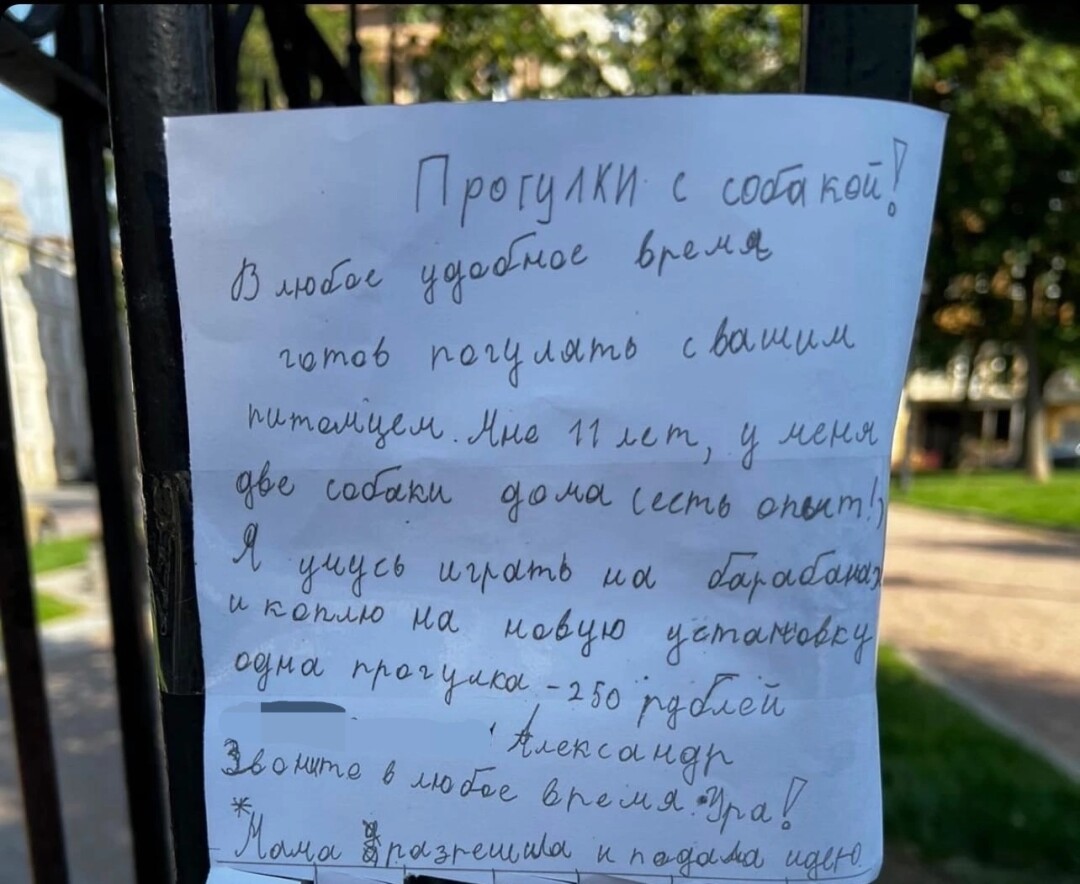 Прогулки с собакой!
В любое удобное время
готов погулять с вашим
питомцем. Мне 11 лет, у меня
две собаки дома (есть опыт!)
Я учусь играть на барабанах
и коплю на новую установку
одна прогулка - 250 рублей
Александр
Звоните в любое время. Ура!
*Мама разрешила и подала идею